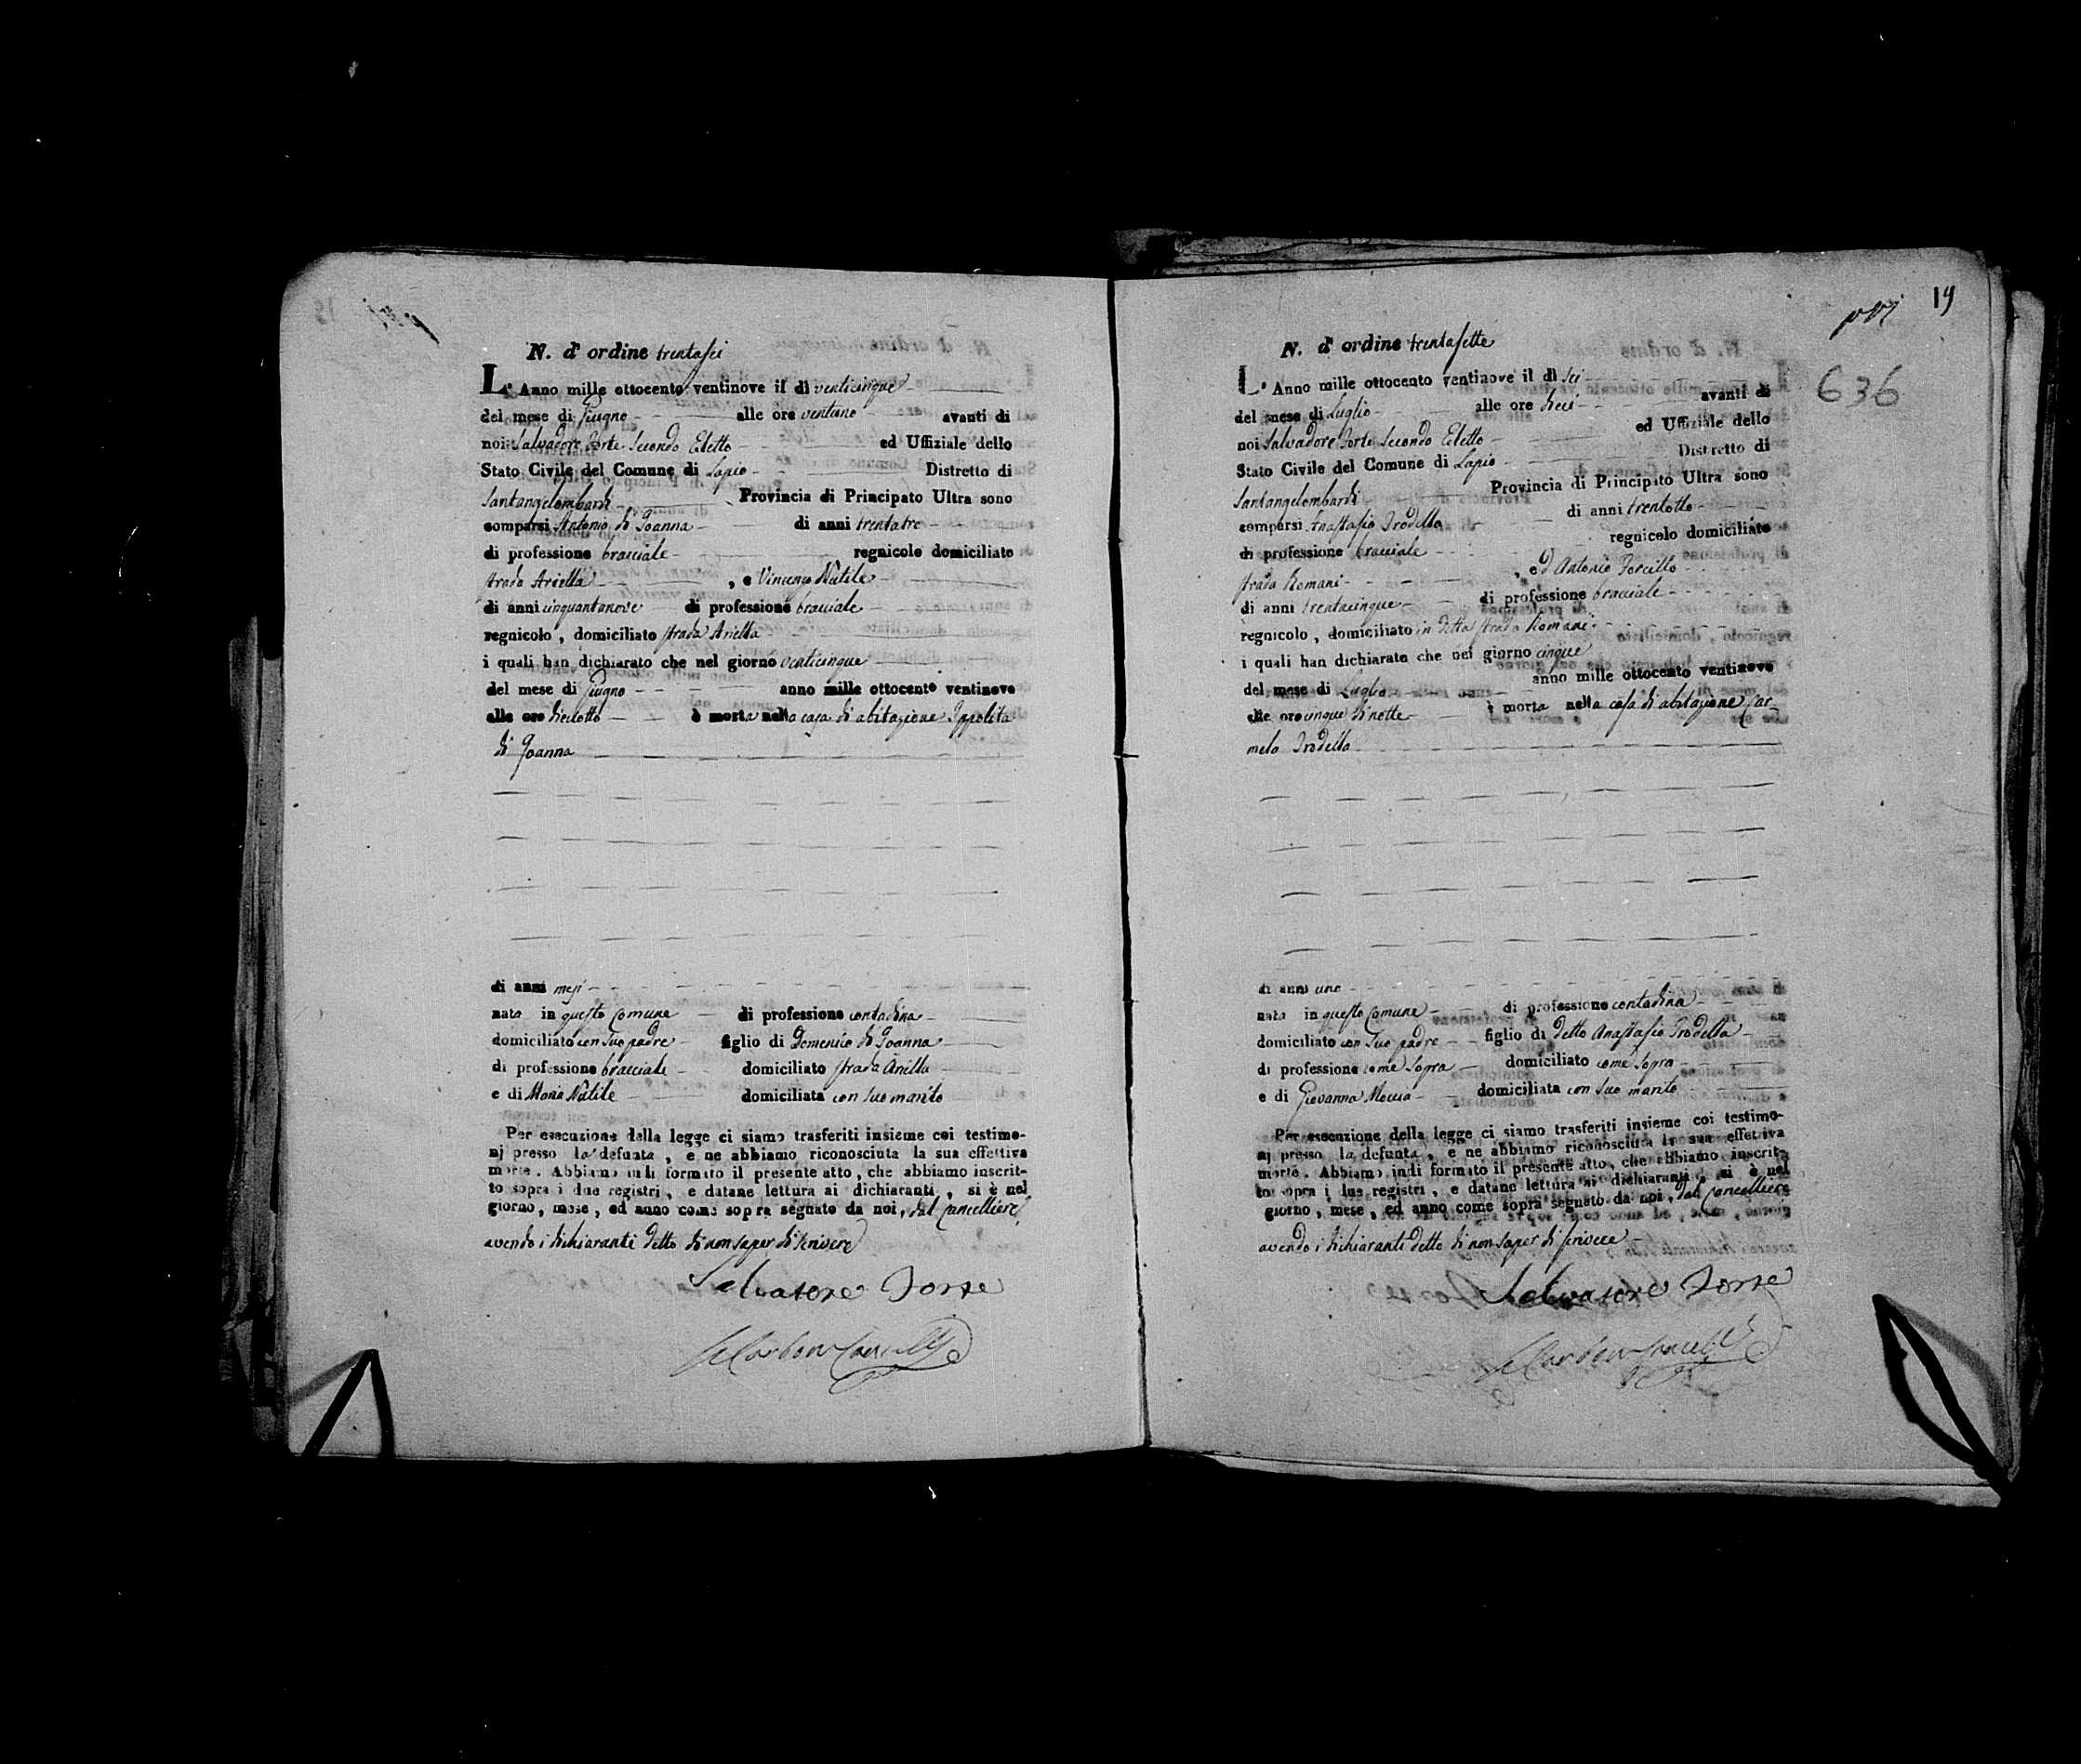 N. d'ordine trentasei
L'Anno mille ottocento ventinove il dì venticinque
del mese di Giugno alle ore ventuno avanti di
noi Salvadore Forte Secondo Eletto ed Uffiziale dello
Stato Civile del Comune di Lapio Distretto di
Santangelombardi Provincia di Principato Ultra sono
comparsi Antonio di Joanna di anni trentatre
di professione bracciale regnicolo domiciliato
strada Ariella , e Vincenzo Natile
di anni cinquantanove di professione bracciale
regnicolo , domiciliato strada Ariella
i quali han dichiarato che nel giorno venticinque
del mese di Giugno anno mille ottocento ventinove
alle ore dieciotto è morta nella casa di abitazione Ippolita
di Joanna
di anni mesi
nata in questo Comune di professione contadina
domiciliato con suo padre figlio di Domenico di Joanna
di professione bracciale domiciliato strada Ariella
e di Maria Natile domiciliata con suo marito
Per esecuzione della legge ci siamo trasferiti insieme coi testimo-
nj presso la defunta , e ne abbiamo riconosciuta la sua effettiva
morte . Abbiamo indi formato il presente atto , che abbiamo inscrit-
to sopra i due registri , e datane lettura ai dichiaranti , si è nel
giorno , mese , ed anno come sopra segnato da noi , dal Cancelliere
avendo i dichiaranti detto di non saper di scrivere
Salvatore Forte
19
636
N. d'ordine trentasette
L'Anno mille ottocento ventinove il dì sei
del mese di Luglio alle ore dieci avanti di
noi Salvadore Forte Secondo Eletto ed Uffiziale dello
Stato Civile del Comune di Lapio Distretto di
Santangelombardi Provincia di Principato Ultra sono
comparsi Anastasio Trodella di anni trentotto
di professione bracciale regnicolo domiciliato
strada Romani , ed Antonio Forcillo
di anni trentacinque di professione bracciale
regnicolo , domiciliato in detta strada Romani
i quali han dichiarato che nel giorno cinque
del mese di Luglio anno mille ottocento ventinove
alle ore cinque di notte è morta nella casa di abitazione Car-
mela Trodella
di anni uno
nata in questo Comune di professione contadina
domiciliato con suo padre figlio di detto Anastasio Trodella
di professione come sopra domiciliato come sopra
e di Giovanna Moccia domiciliata con suo marito
Per esecuzione della legge ci siamo trasferiti insieme coi testimo-
nj presso la defunta , e ne abbiamo riconosciuta la sua effettiva
morte . Abbiamo indi formato il presente atto , che abbiamo inscrit-
to sopra i due registri , e datane lettura ai dichiaranti , si è nel
giorno , mese , ed anno come sopra segnato da noi , dal Cancelliere
avendo i dichiaranti detto di non saper di scrivere
Salvatore Forte